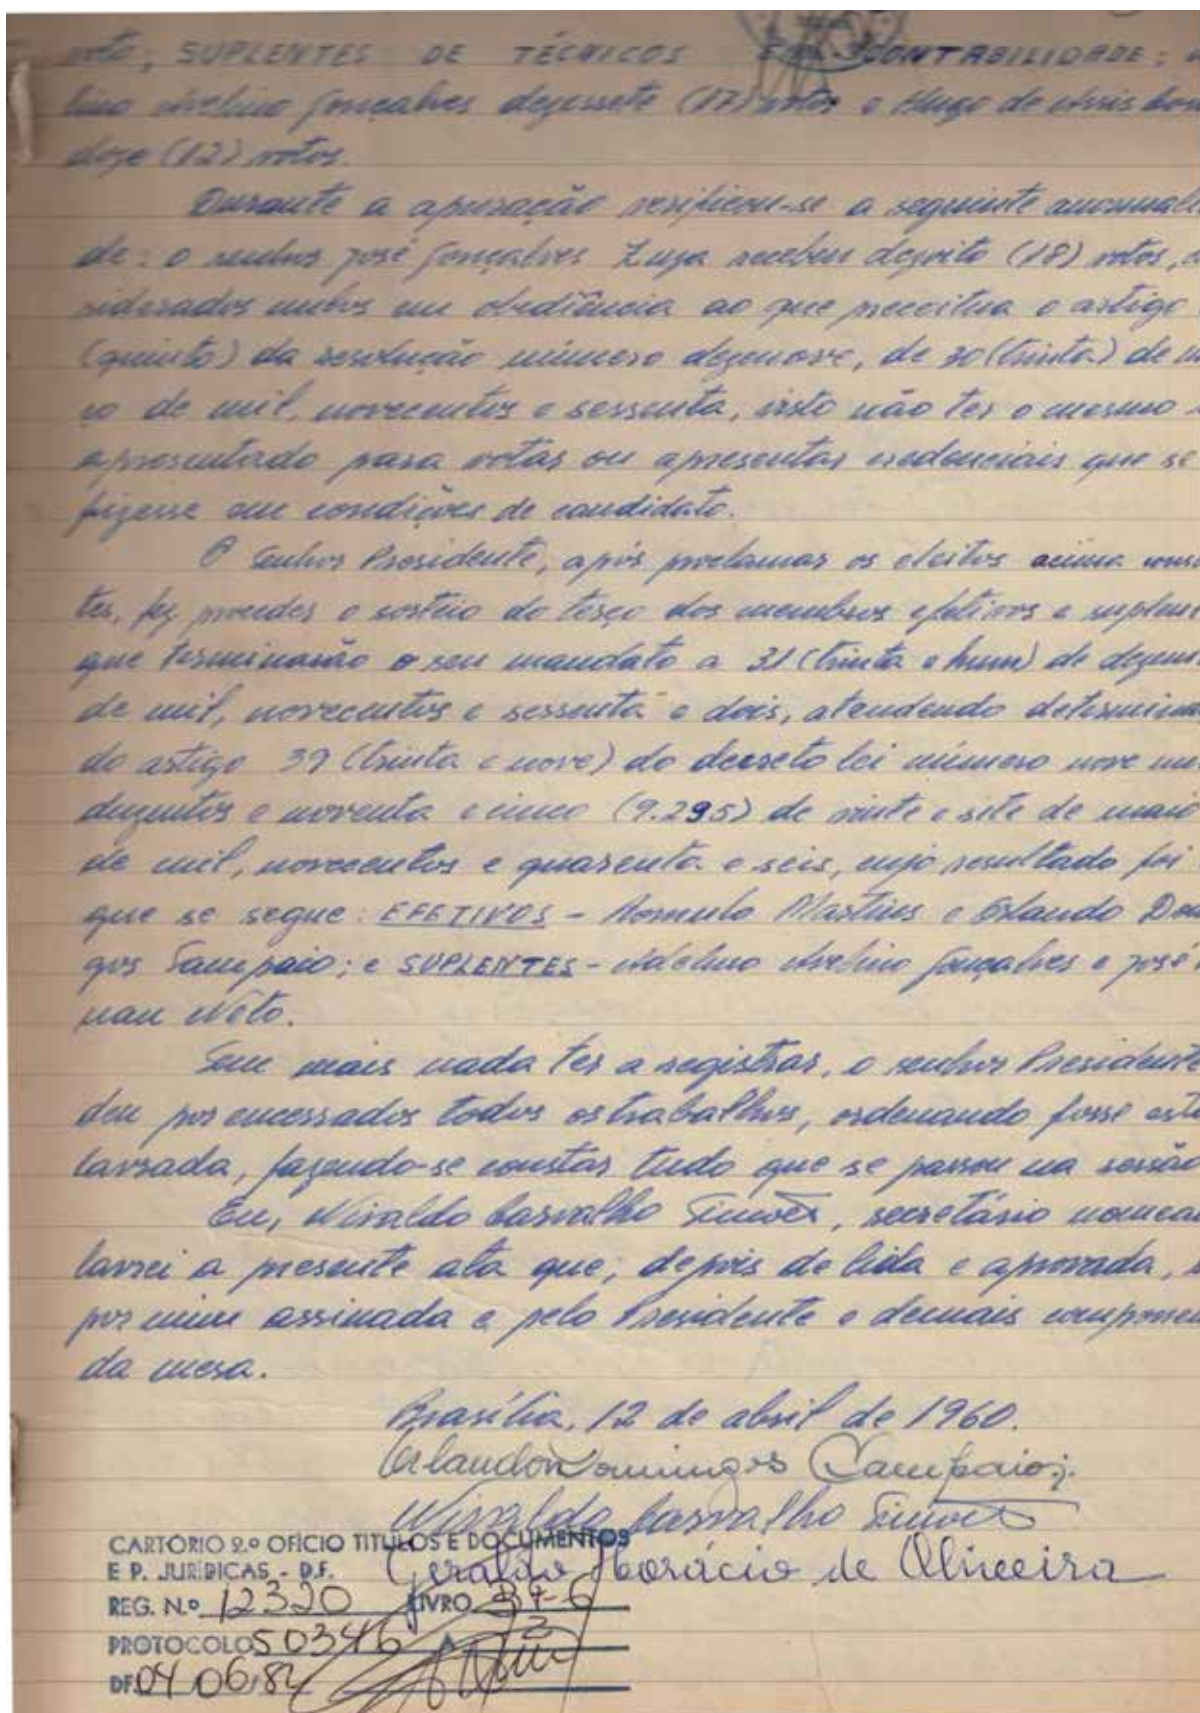 voto; SUPLENTES DE TÉCNICOS EM CONTABILIDADE:
lino Avelino Gonçalves dezessete (17) votos e Hugo de Assis
doze (12) votos.
Durante a apuração verificou-se a seguinte anormali
de: o senhor José Gonçalves Zuza recebeu dezoito (18) votos, co
siderados nulos em obediência ao que preceitua o artigo
(quinto) da resolução número dezenove, de 30 (trinta) de m
ço de mil, novecentos e sessenta, visto não ter o mesmo
apresentado para votar ou apresentar credenciais que se
fizesse em condições de candidato.
O Senhor Presidente, após proclamar os eleitos acima cons
tes, fez proceder o sorteio do terço dos membros efetivos e suplen
que terminarão o seu mandato a 31 (trinta e hum) de dezem
de mil, novecentos e sessenta e dois, atendendo determina
do artigo 39 (trinta e nove) do decreto lei número nove mi
duzentos e noventa e cinco (9.295) de vinte e sete de maio
de mil, novecentos e quarenta e seis, cujo resultado foi
que se segue: EFETIVOS - Romulo Martins e Orlando Do
gos Sampaio; e SUPLENTES - Adelino Avelino Gonçalves e José
nan Néto.
Sem mais nada ter a registrar, o senhor Presidente
deu por encerrados todos os trabalhos, ordenando fosse esta
lavrada, fazendo-se constar tudo que se passou na sessão
Eu, Nivaldo Carvalho Simões, secretário nomea
lavrei a presente ata que, depois de lida e aprovada,
por mim assinada e pelo Presidente e demais componen
da mesa.
Brasília, 12 de abril de 1960.
Orlando Domingos Sampaio
Nivaldo Carvalho Simões
Geraldo Horácio de Oliveira
CARTÓRIO 2.º OFICIO TITULOS E DOCUMENTOS
E P. JURIDICAS - D.F.
REG. N.º 12320 LIVRO
PROTOCOLO 50346 A 3
DF. 04/06/82